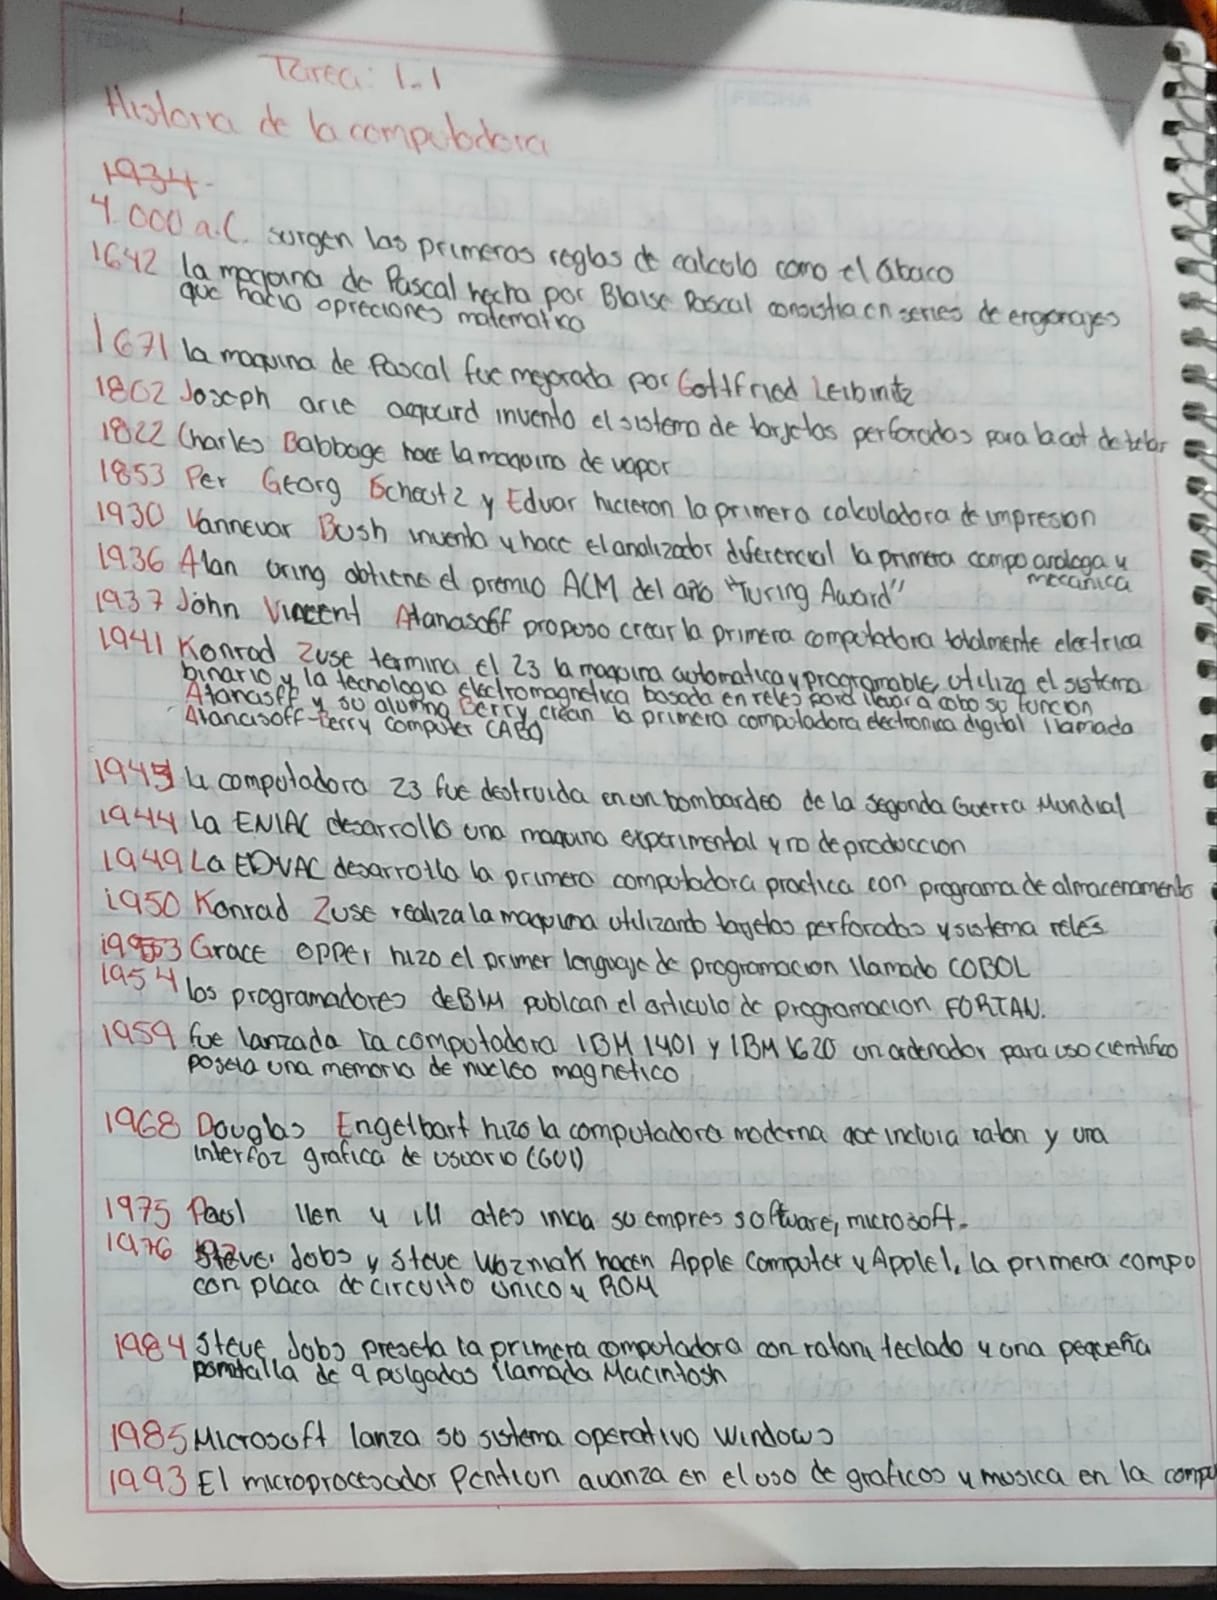 TEMA
FECHA
Tarea: 1.1
Historia de la computadora
1934-
4.000 a.C. surgen las primeros reglas de calcolo como el Abaco
1642 la maquina de Pascal hecha por Blaise Pascal consistia en series de
que hacia opreciones matematica
1671 la maquina de Pascal fue mejorada por Gottfried Leibnitz
1802 Joseph arie invento el sistema de tarjetas perforadas para la de telar
1822 Charles Babbage hace la maquina de vapor
1853 Per Georg Scheutz y Edvar hicieron la primera calculadora de impresion
1930 Vannevar Bush invento y hace el analizador diferencial la primera compo analoga y
mecanica
1936 Alan uring obtiene el premio ACM del año "Turing Award"
1937 John Vincent Atanasoff propuso crear la primera computadora totalmente electrica
1941 Konrad Zuse termina el Z3 la maquina automatica y programable, utiliza el sistema
binario y la tecnologia electromagnetica basada en reles para llevar a cabo su funcion
Atanasff y su alumno Berry crean la primera computadora electronica digital llamada
Atanasoff-Berry Computer (ABC)
1945 la computadora Z3 fue destruida en un bombardeo de la Segonda Guerra Mundial
1944 La ENIAC desarrollo una maquina experimental y no de produccion
1949 La EDVAC desarrolla la primera computadora practica con programa de almacenamento
1950 Konrad Zuse realiza la maquina utilizando tarjetas perforadas y sistema relés
1953 Grace opper hizo el primer lenguaje de programacion llamado COBOL
1954 los programadores de BIM publcan el articulo de programacion FORTAN.
1959 fue lanzada la computadora IBM 1401 y IBM 1620 un ordenador para uso cientifico
poseia una memoria de nucleo magnetico
1968 Douglas Engelbart hizo la computadora moderna que incluia raton y una
interfaz grafica de usuario (GUI)
1975 Paul llen y ill ates inicia su empres software, microsoft.
1976 Steve Jobs y Steve Wozniak hacen Apple Computer y Apple I, la primera compo
con placa de circuito unico y ROM
1984 Steve Jobs preseta la primera computadora con raton, teclado y una pequeña
pantalla de 9 pulgadas llamada Macintosh
1985 Microsoft lanza su sistema operativo Windows
1993 El microprocesador Pention avanza en el uso de graficos y musica en la compu